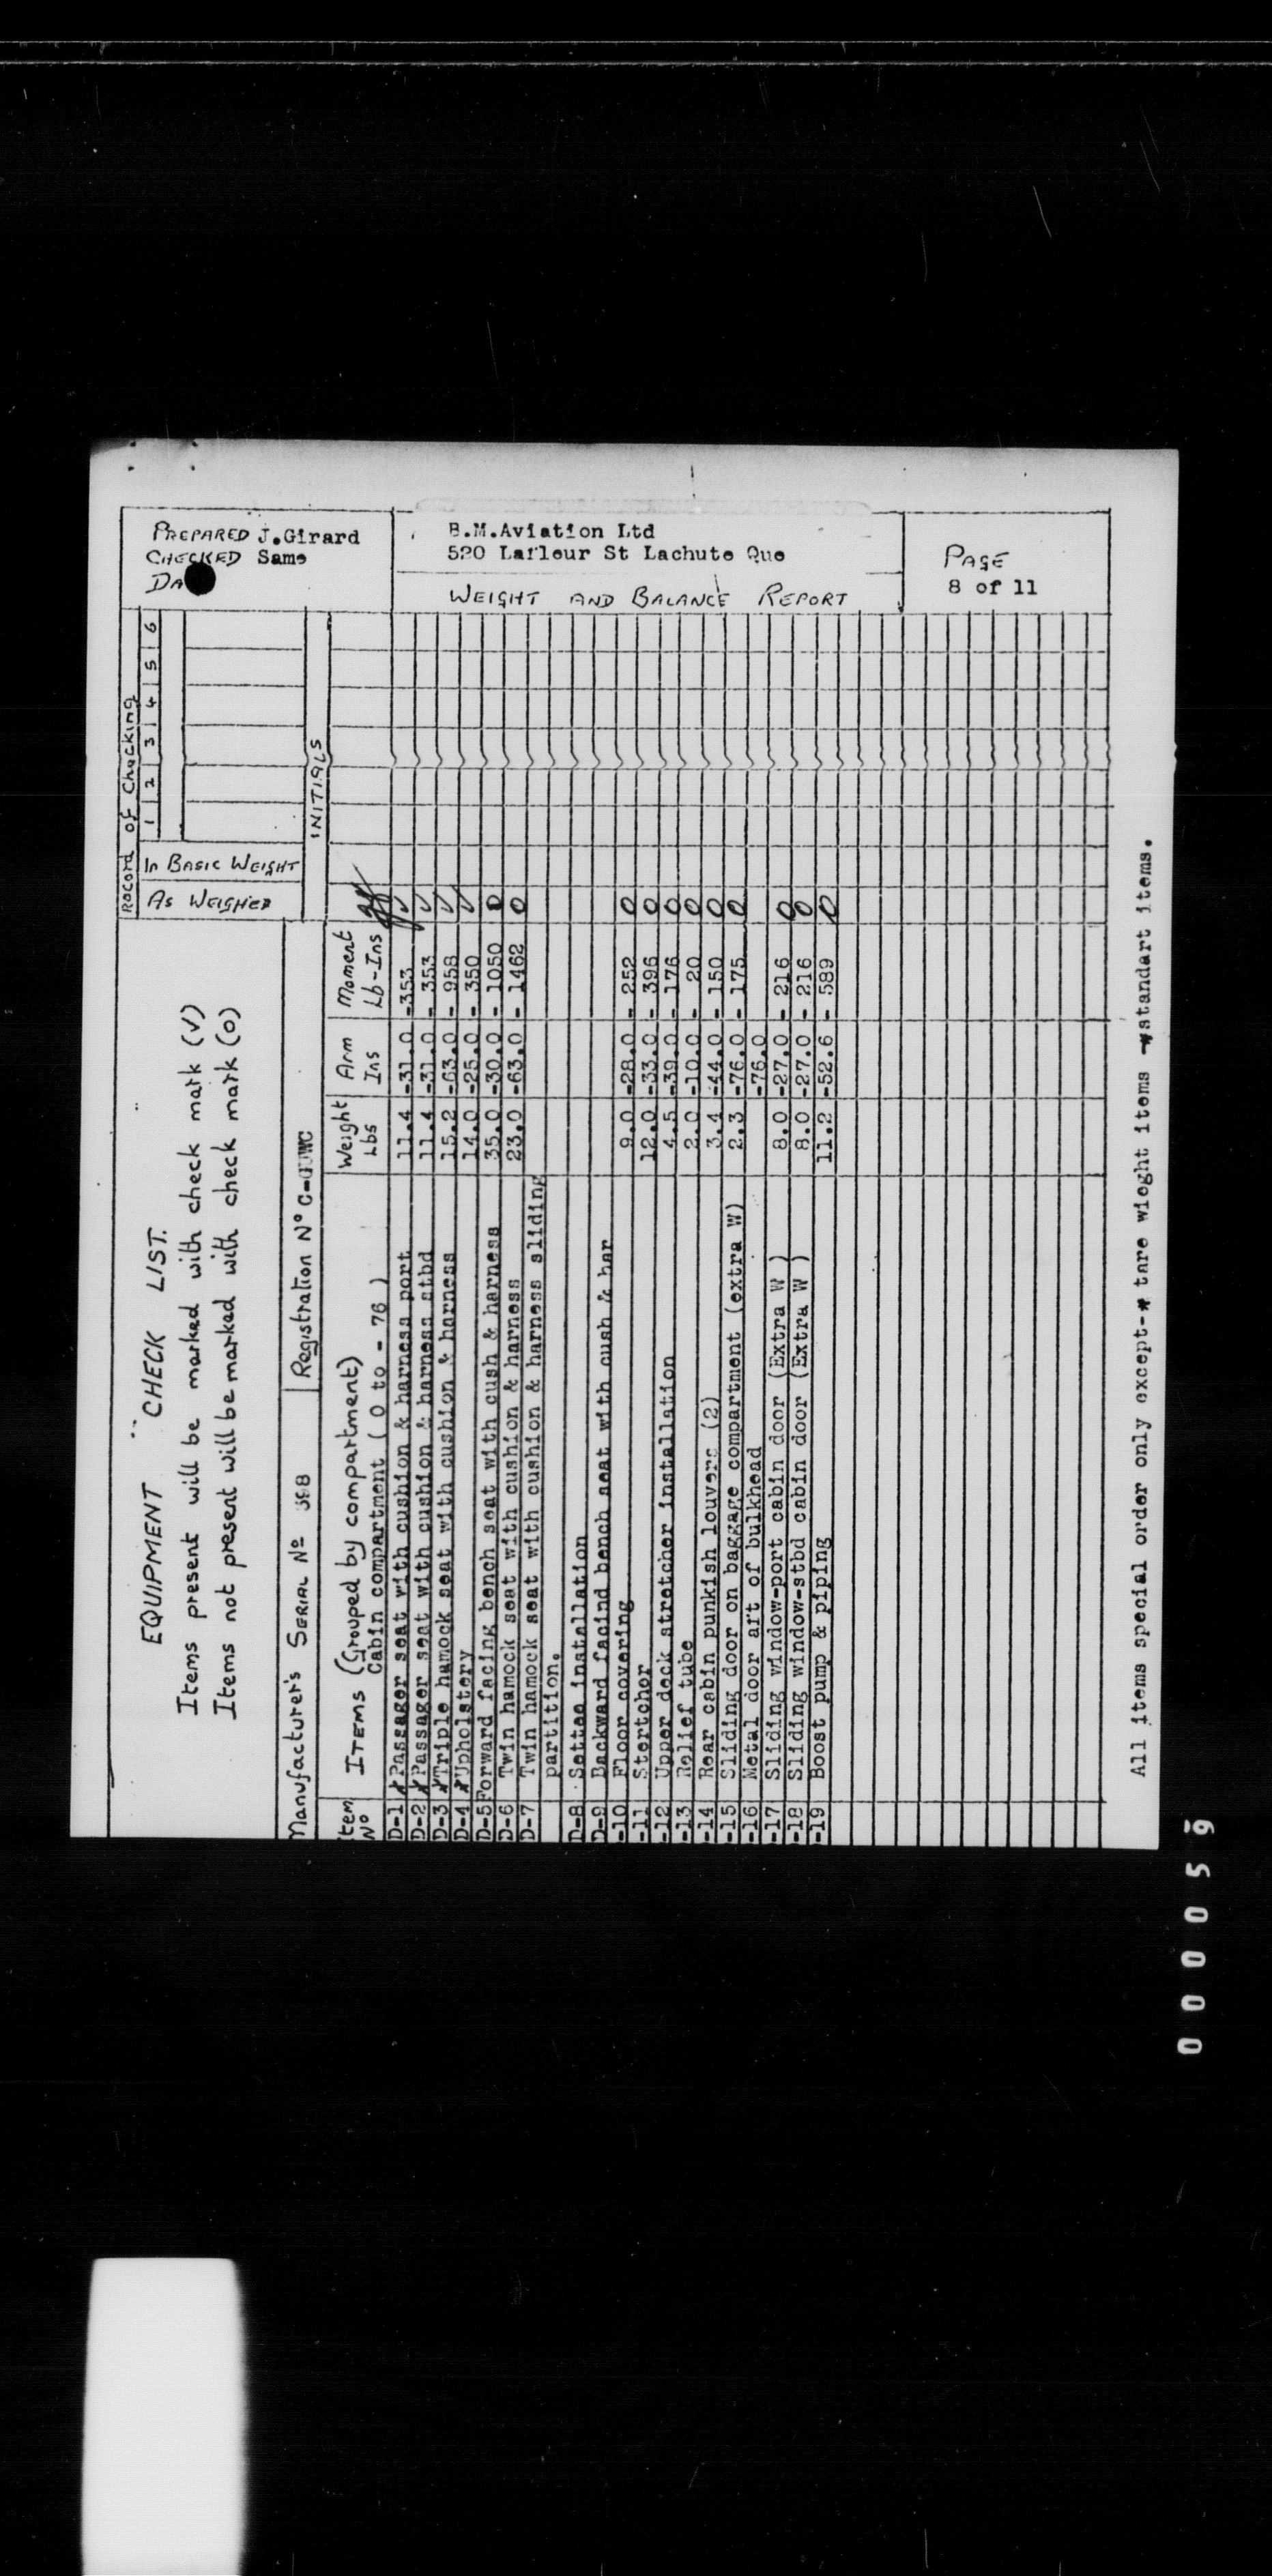 PREPARED J.Girard
CHECKED Same
DA
B.M.Aviation Ltd
520 Lafleur St Lachute Que
WEIGHT AND BALANCE REPORT
PAGE
8 of 11
EQUIPMENT CHECK LIST.
Items present will be marked with check mark (√)
Items not present will be marked with check mark (o)
Record of Checking
As WEIGHED
In BASIC WEIGHT
1 2 3 4 5 6
INITIALS
Manufacturer's SERIAL No 398 Registration No
Item No ITEMS (Grouped by compartment) Weight Lbs Arm Ins Moment Lb-Ins
Cabin compartment ( 0 to - 76 )
D-1 *Passager seat with cushion & harness port 11.4 -31.0 -353 √
D-2 *Passager seat with cushion & harness stbd 11.4 -31.0 - 353 √
D-3 *Triple hamock seat with cushion & harness 15.2 -63.0 - 958 √
D-4 *Upholstery 14.0 -25.0 - 350 √
D-5 Forward facing bench seat with cush & harness 35.0 -30.0 - 1050 0
D-6 Twin hamock seat with cushion & harness 23.0 -63.0 - 1462 0
D-7 Twin hamock seat with cushion & harness sliding
partition.
D-8 Settee installation
D-9 Backward facind bench seat with cush & har
-10 Floor covering 9.0 -28.0 - 252 0
-11 Stertcher 12.0 -33.0 - 396 0
-12 Upper deck stretcher installation 4.5 -39.0 - 176 0
-13 Relief tube 2.0 -10.0 - 20 0
-14 Rear cabin punkish louvers (2) 3.4 -44.0 - 150 0
-15 Sliding door on baggage compartment (extra W) 2.3 -76.0 - 175 0
-16 Metal door art of bulkhead -76.0
-17 Sliding window-port cabin door (Extra W ) 8.0 -27.0 - 216 0
-18 Sliding window-stbd cabin door (Extra W ) 8.0 -27.0 - 216 0
-19 Boost pump & piping 11.2 -52.6 - 589 0
All items special order only except-* tare wieght items -*standart items.
000059